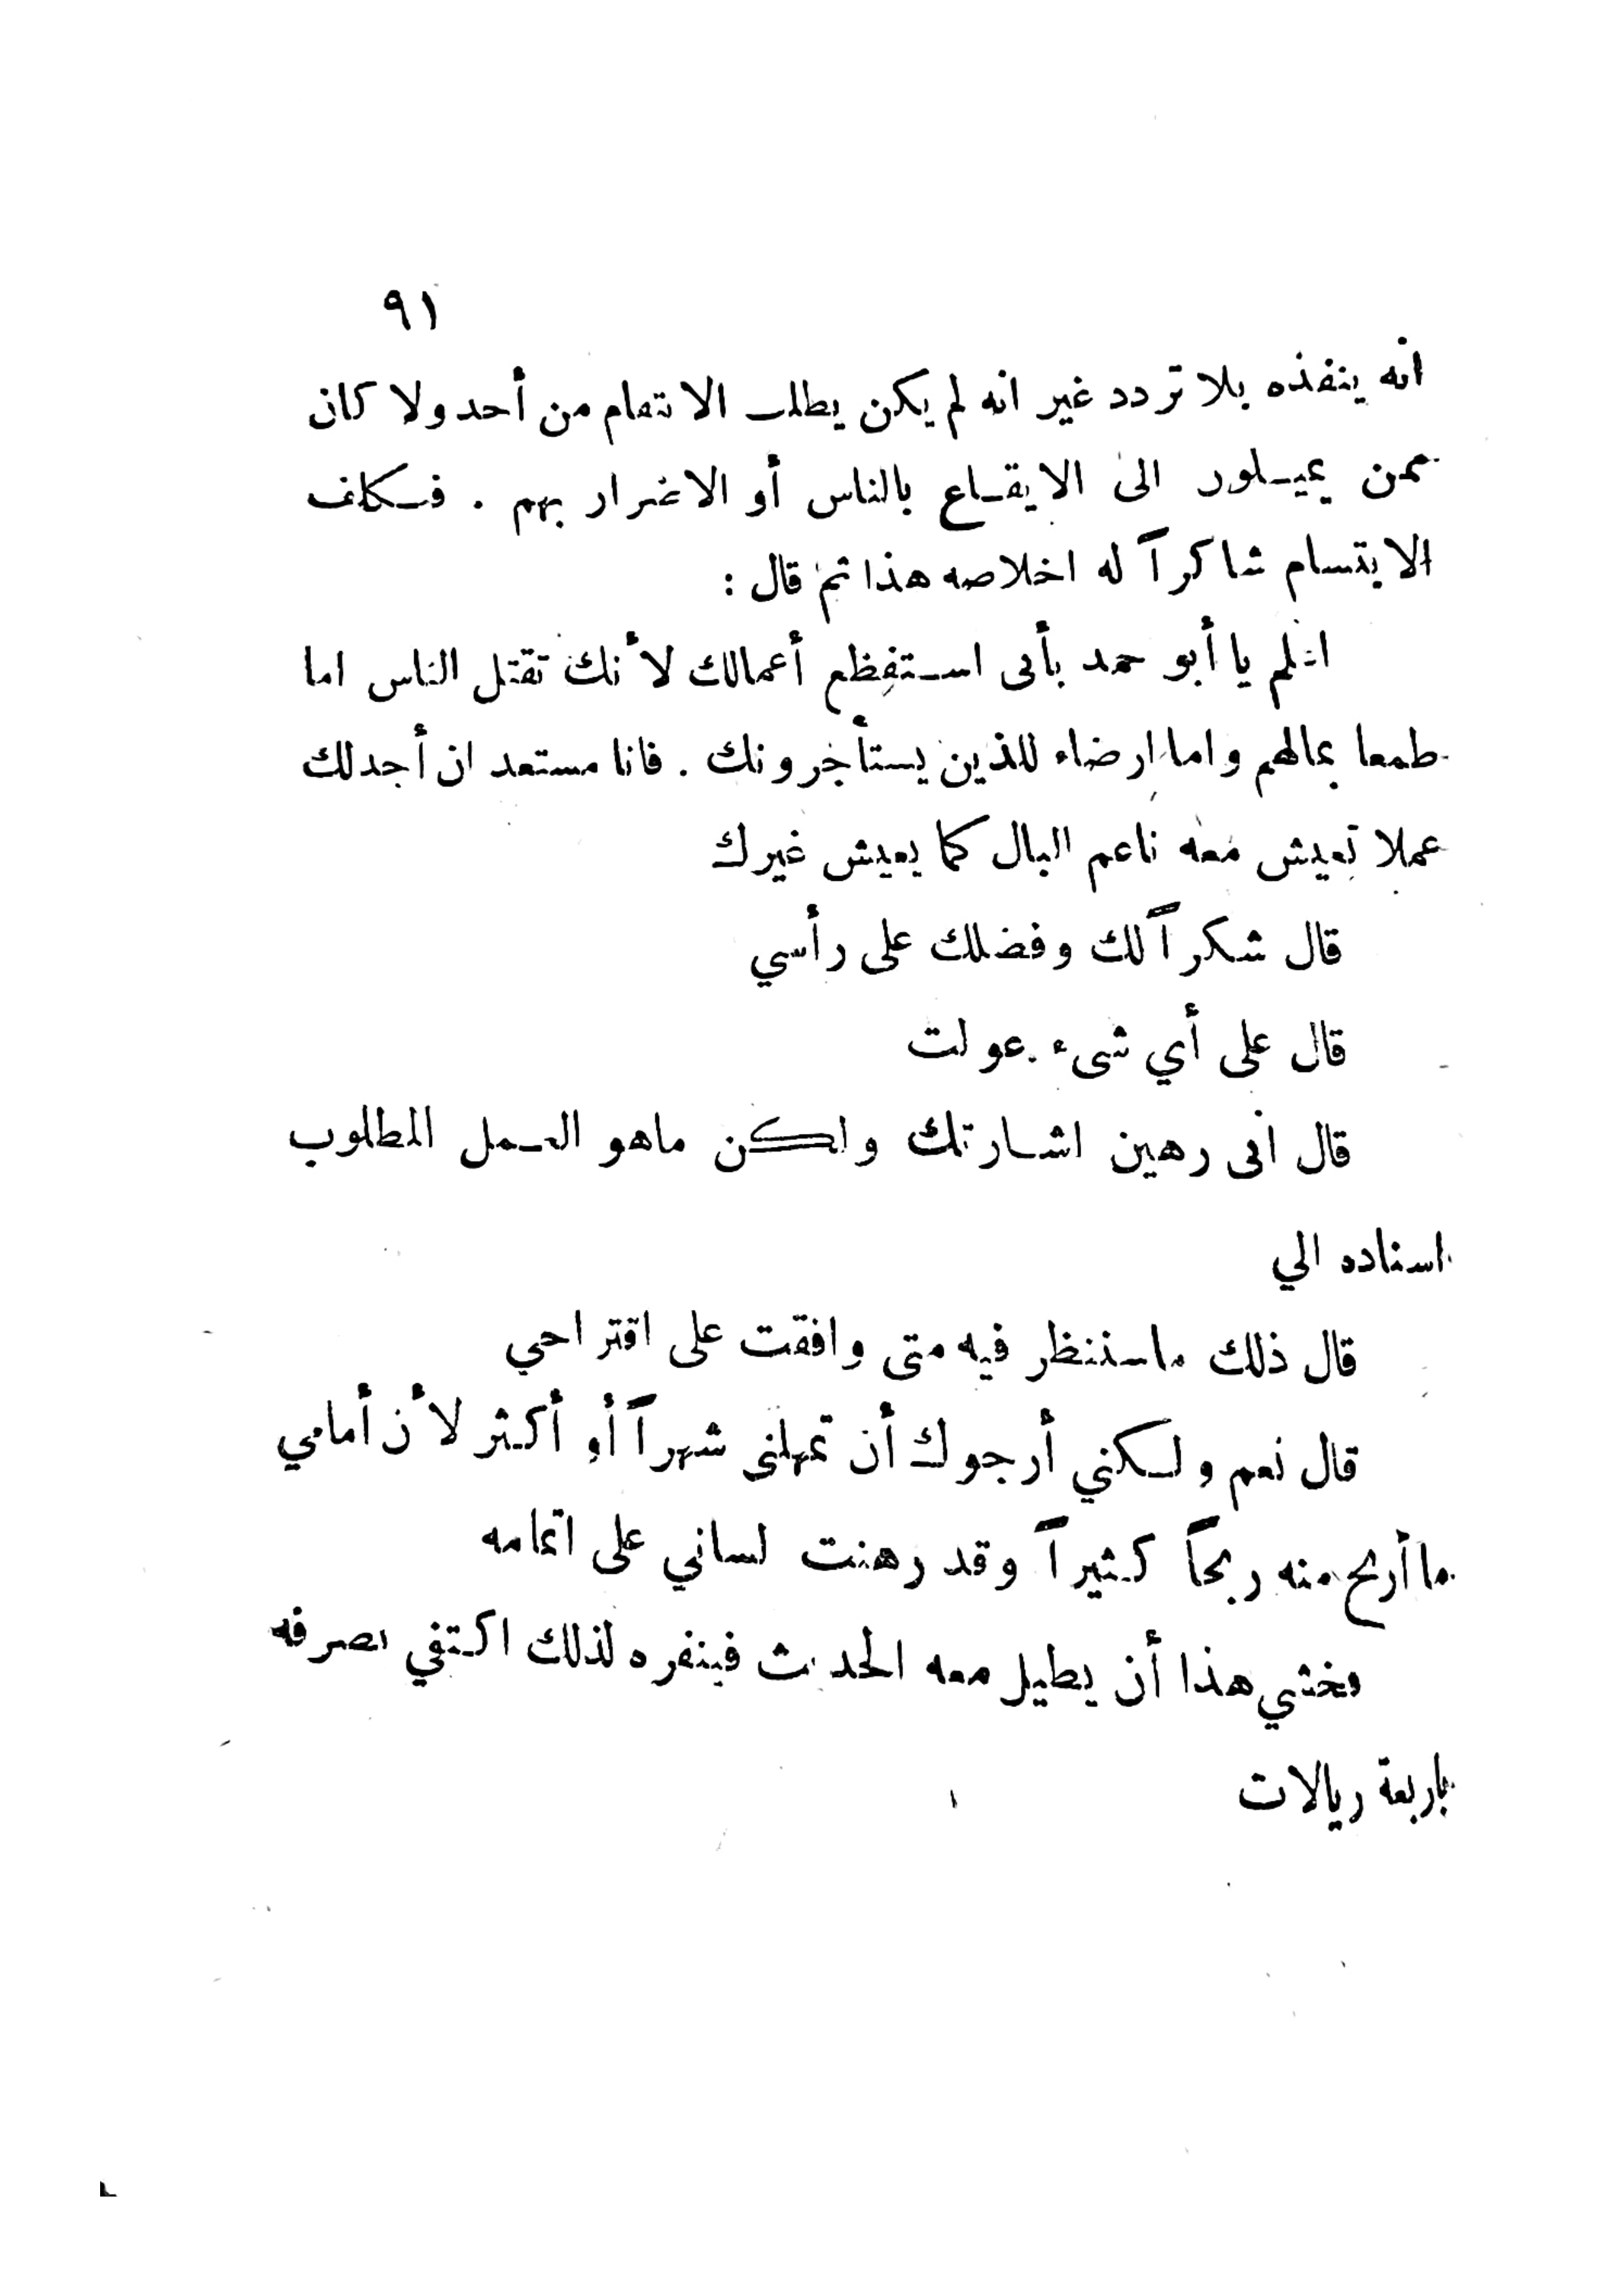 ٩١
انه ينفذه بلا تردد غير انه لم يكن يطلب الانتقام من أحد ولا كان
ممن يميلون الى الايقاع بالناس أو الاضرار بهم . فكان
الابتسام شاكراً له اخلاصه هذا ثم قال :
اتعلم يا أبو حمد بأنى استفظع أعمالك لأنك تقتل الناس اما
طمعا بمالهم واما ارضاء للذين يستأجرونك . فانا مستعد ان أجد لك
عملا تعيش معه ناعم البال كما يعيش غيرك
قال شكراً لك وفضلك على رأسي
قال على أي شىء عولت
قال انى رهين اشارتك ولكن ماهو العمل المطلوب
اسناده الي
قال ذلك ما سننظر فيه متى وافقت على اقتراحي
قال نعم ولكني أرجوك أن تمهلنى شهراً أو أكثر لأن أمامي
ما أربح منه ربحاً كثيراً وقد رهنت لساني على اتمامه
فخشي هذا أن يطيل معه الحديث فينفره لذلك اكتفي بصرفه
باربعة ريالات